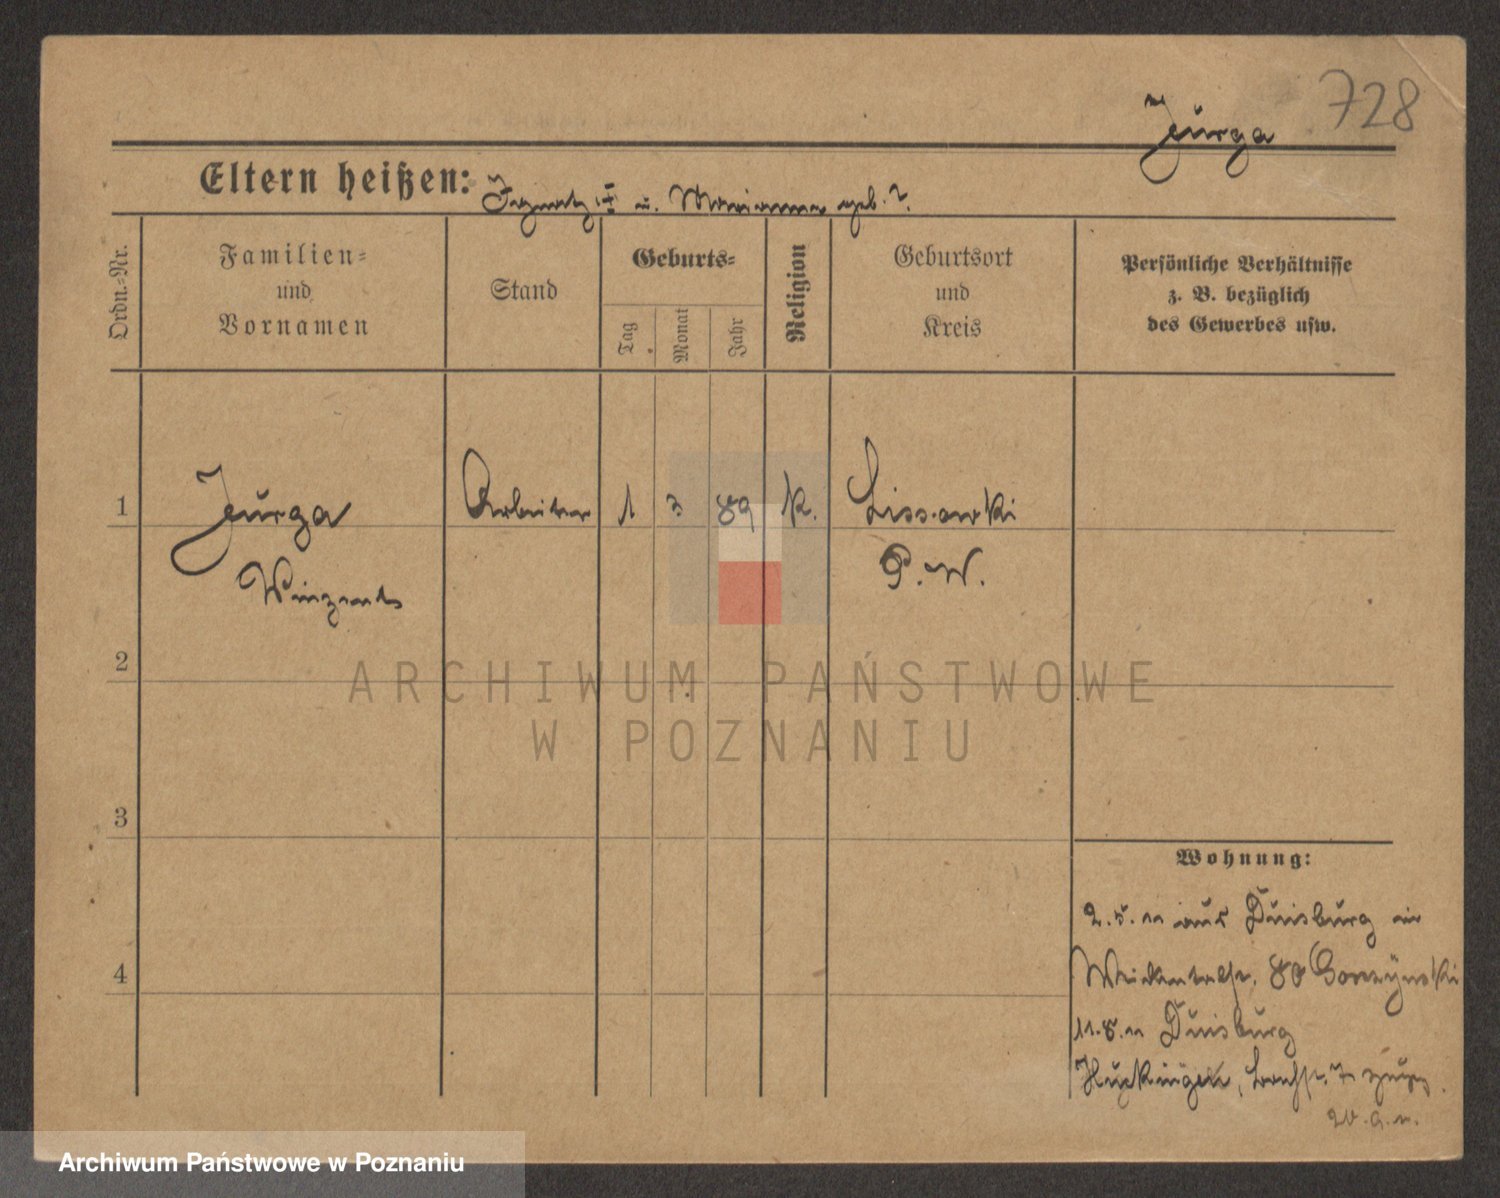 728
Jurga
Eltern heißen: Ignatz I u. Marianna geb. ?
Ordn.-Nr.
Familien-
und
Vornamen
Stand
Geburts-
Tag
Monat
Jahr
Religion
Geburtsort
und
Kreis
Persönliche Verhältnisse
z. B. bezüglich
des Gewerbes usw.
1
Jurga
Winzents
Arbeiter
1
3
89
k.
Lissowki
P. W.
2
ARCHIWUM PAŃSTWOWE
W POZNANIU
3
4
Wohnung:
2.5.11 aus Duisburg in
80 Gorzynski
11.8.11 Duisburg
Huckingen, 7
Archiwum Państwowe w Poznaniu